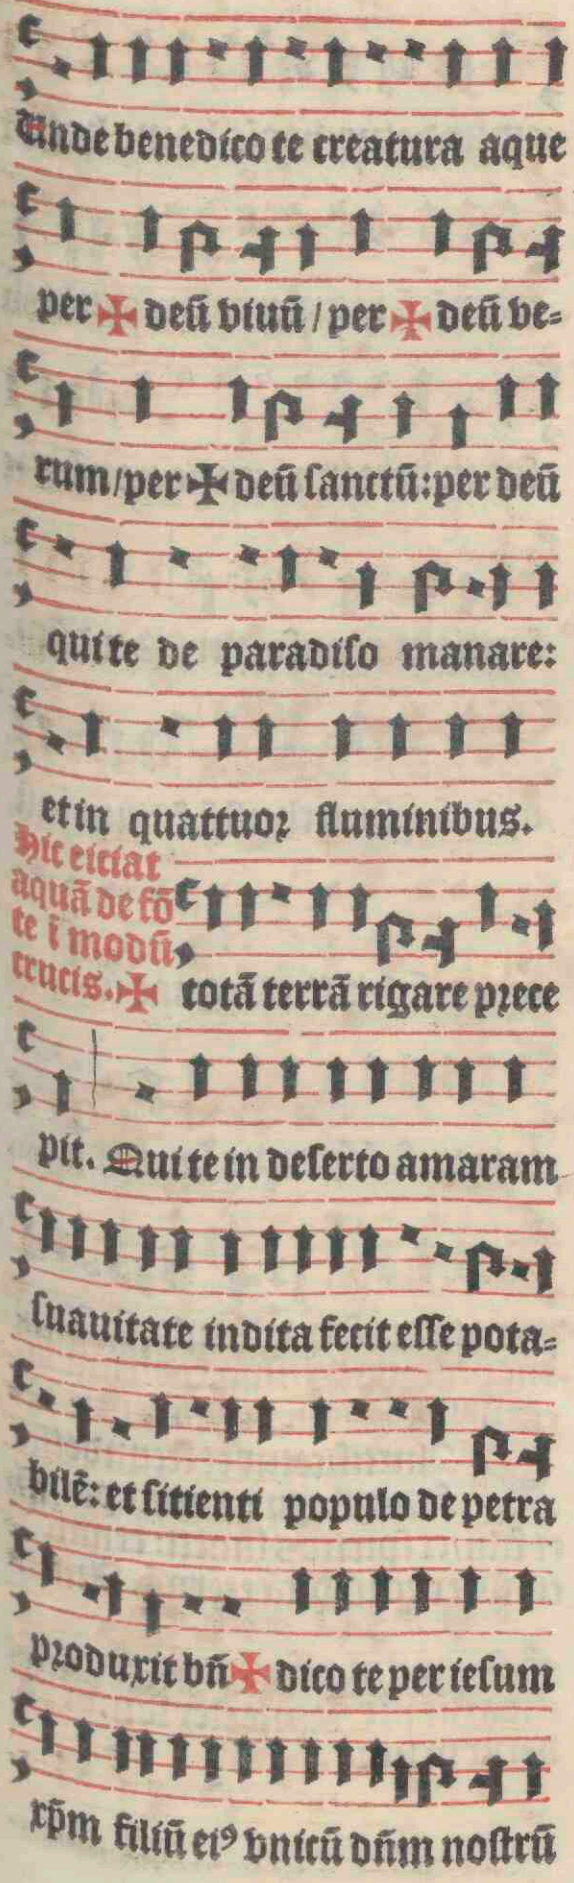 Unde benedico te creatura aque
per ✠ deū viuū / per ✠ deū ve=
rum / per ✠ deū sanctū: per deū
qui te de paradiso manare:
et in quattuor fluminibus.
Hic eiciat
aquā de fō
te ī modū
crucis. ✠
totā terrā rigare prece
pit. Qui te in deserto amaram
suauitate indita fecit esse pota=
bilē: et sitienti populo de petra
produxit bn̄ ✠ dico te per iesum
xp̄m filiū eiꝰ vnicū dn̄m nostrū